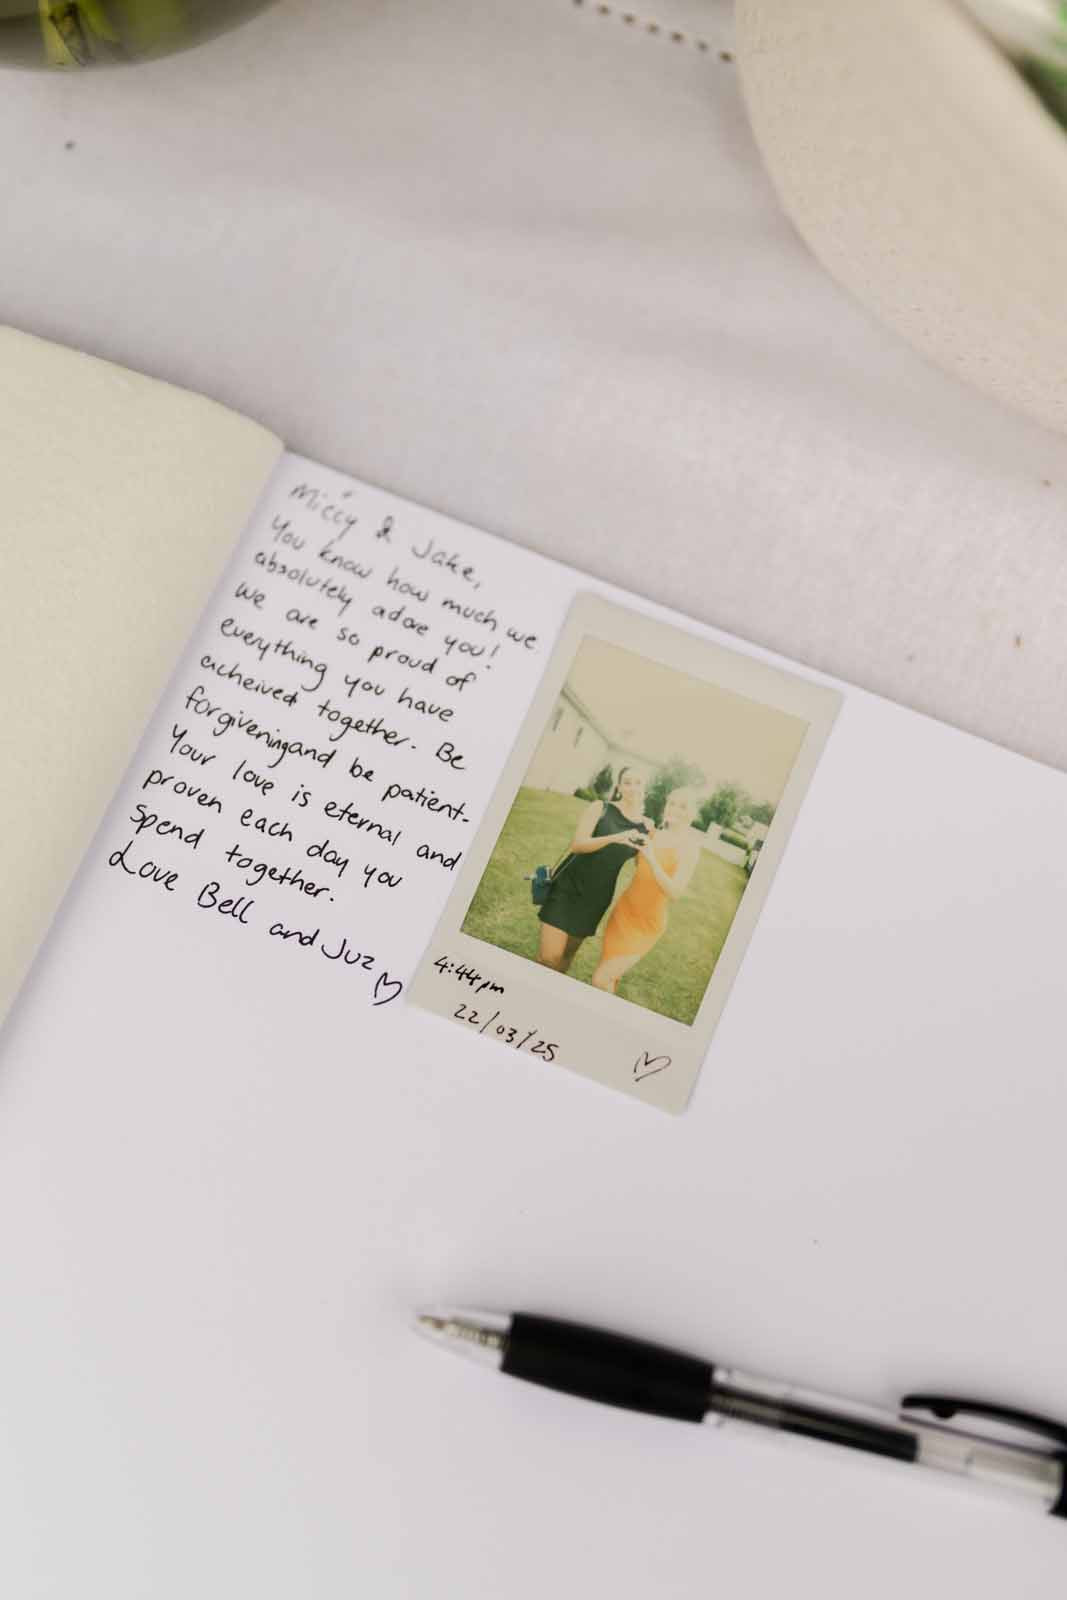 Miccy & Jake,
You know how much we
absolutely adore you!
We are so proud of
everything you have
acheived together. Be
forgivening and be patient.
Your love is eternal and
proven each day you
spend together.
Love Bell and Juz ♡
4:44pm
22/03/25 ♡